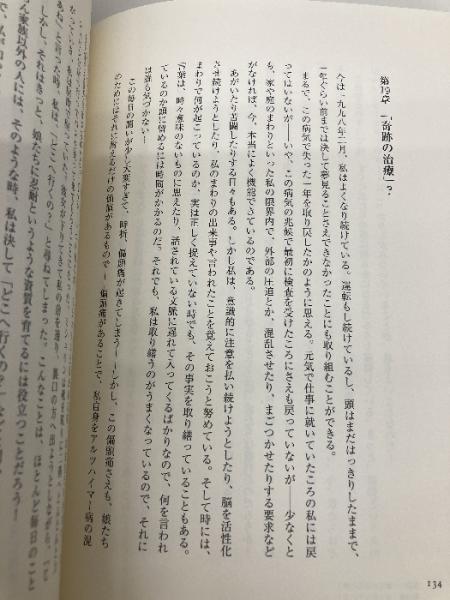 第19章 「奇跡の治療」?
今は一九九八年二月、私はよくなり続けている。運転もし続けているし、頭はまだはっきりしたままで、
一年ぐらい前までは決して夢見ることさえできなかったことにも取り組むことができる。
まるで、この病気で失った一年を取り戻したかのように思える。元気で仕事に就いていたころの私には戻
ってはいないが――いや、この病気の兆候で最初に検査を受けたころにさえも戻っていないが――少なくと
も、家や庭のまわりといった私の限界内で、外部の圧迫とか、混乱させたり、まごつかせたりする要求など
がなければ、今、本当によく機能できているのである。
あがいたり苦闘したりする日々もある。しかし私は、意識的に注意を払い続けようとしたり、脳を活性化
させ続けようとしたり、私のまわりの出来事や言われたことを覚えておこうと努めている。そして時には、
まわりで何が起こっているのか、実は正しく捉えていない時でも、その事実を取り繕うこともある。
言葉は、時々意味のないものに思えたり、話されている文脈に遅れて入ってくるばかりなので、何を言われ
ているのか頭に留めるには時間がかかるのだ。それでも、私は取り繕うのがうまくなっているので、それに
は誰も気づかない――
この毎日の闘いが少し大変すぎて、時折、偏頭痛が起きてしまう――しかし、この偏頭痛さえも、娘たち
のためにはそれに耐えるだけの価値があるもので――偏頭痛があることで、私自身をアルツハイマー病の混
134
しかし、それはきっと、娘たちに忍耐というような資質を育てるには役立つことだろう――
ん家族以外の人には、そのような時、私は決して「どこへ行くの?」など